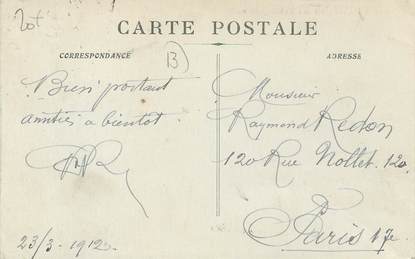 Lot
CARTE POSTALE
CORRESPONDANCE
B
ADRESSE
Bien portant
amitiés a bientot
Monsieur
Raymond Redon
120 Rue Nollet. 120
Paris 17e
23/3-1912